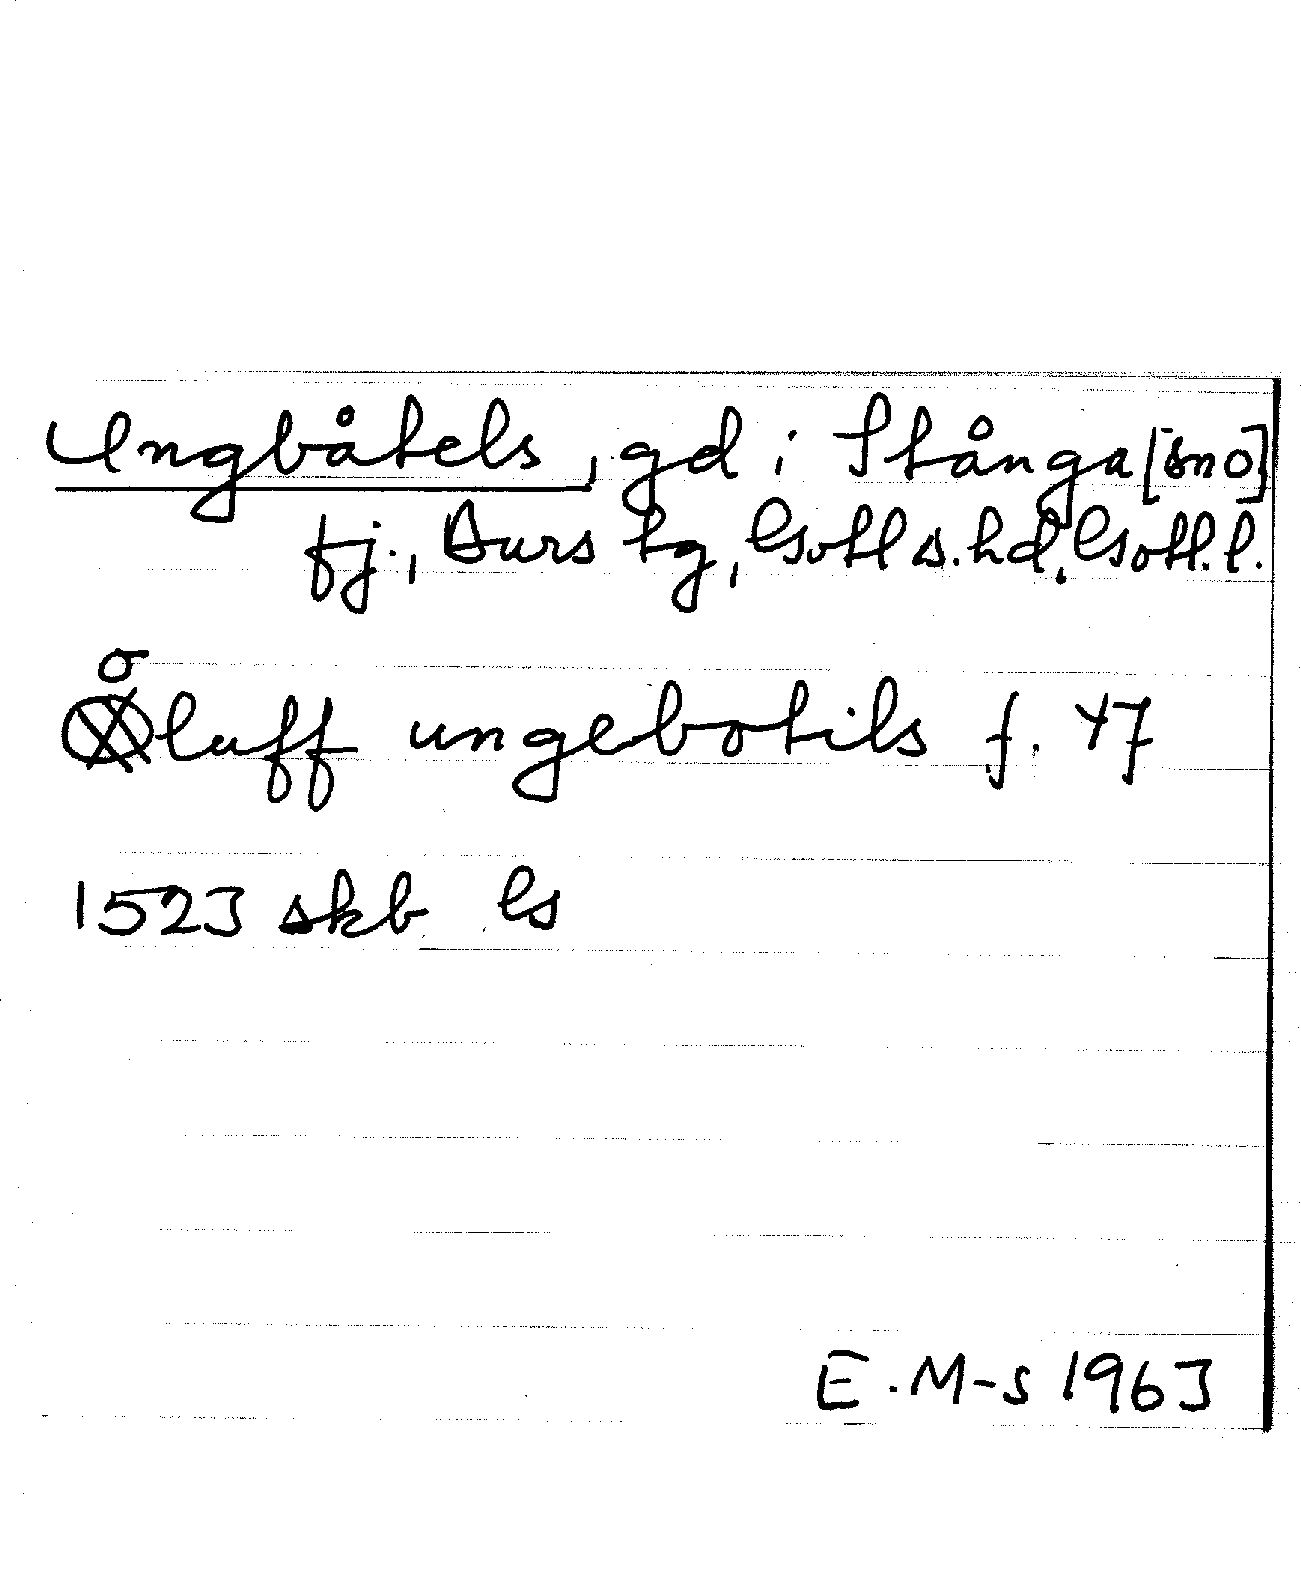 Ungbåtels, gd i Stånga [sno]
fj., Burs tg, Gotl s.hd, Gotl. l.
oluff ungebotils f. 47
1523 skb G
E. M-s 1963